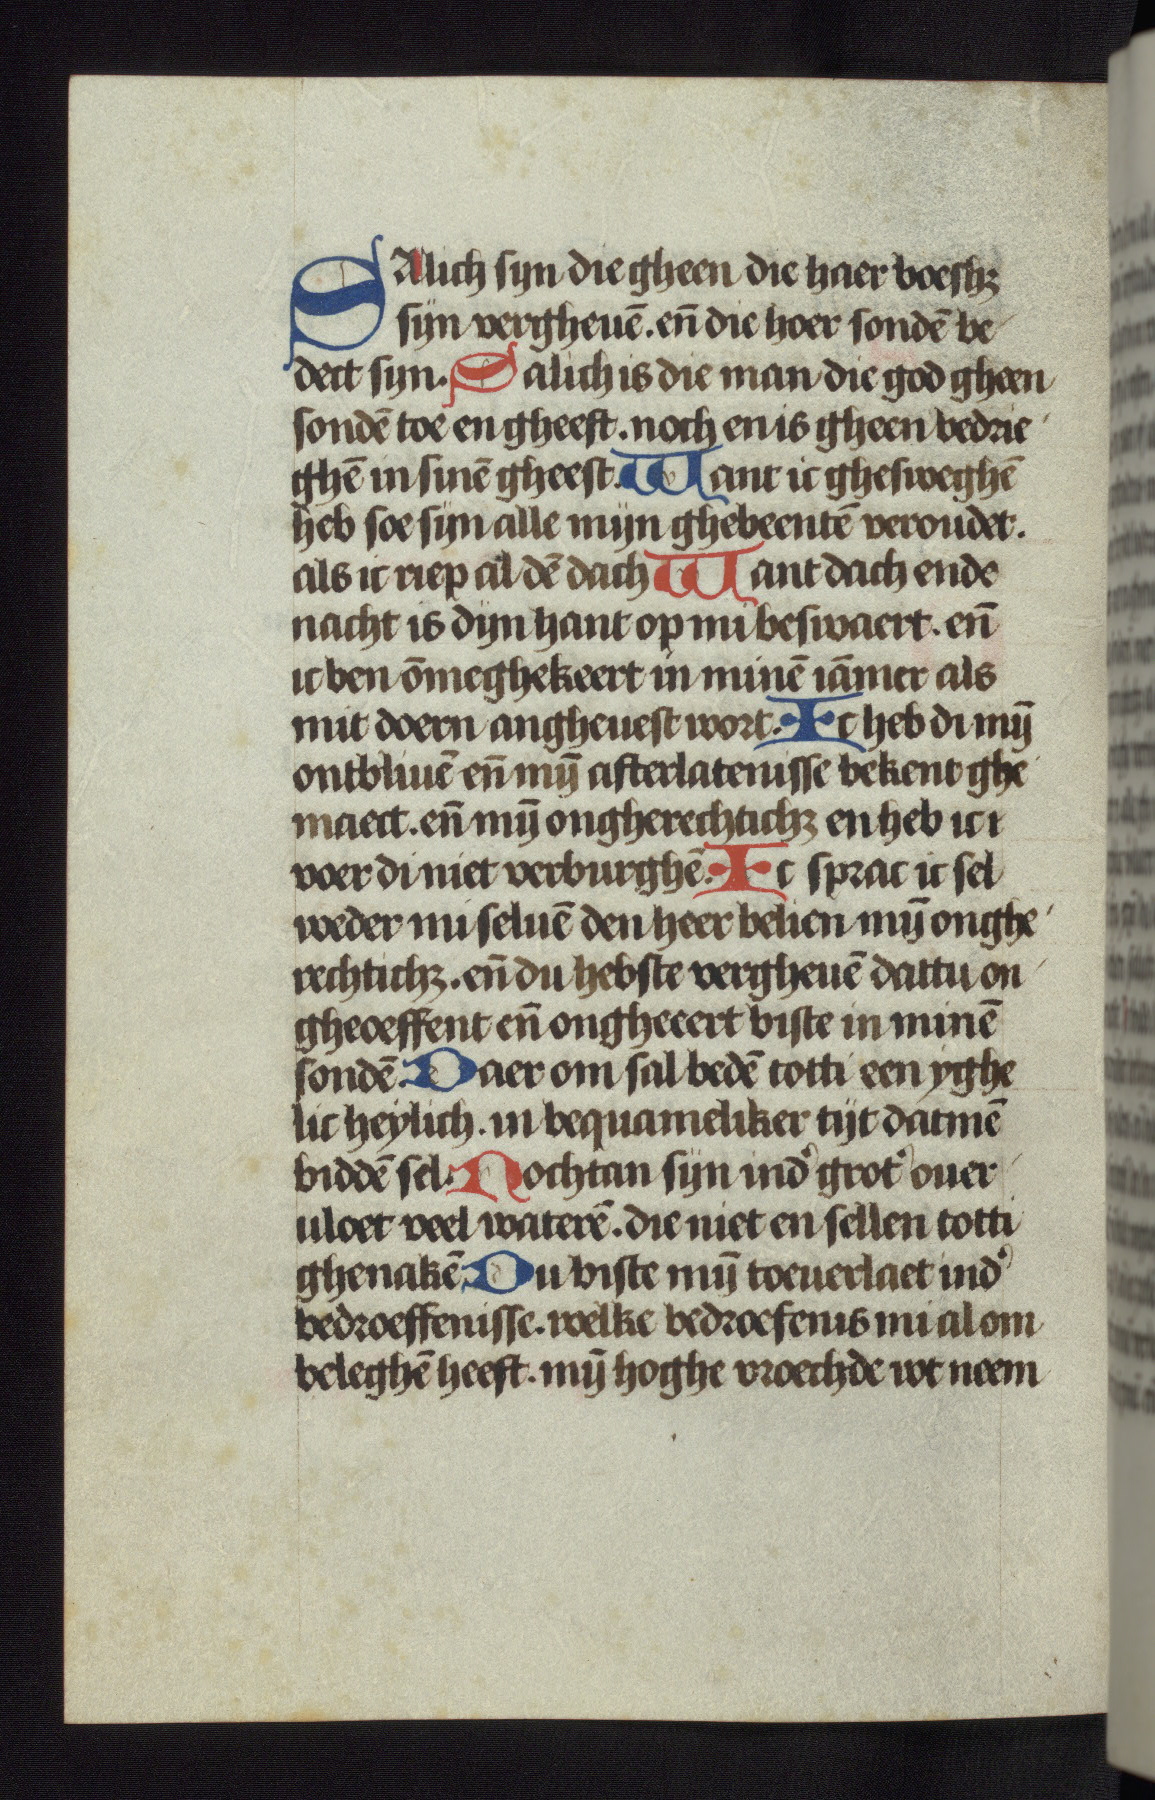 SAlich sijn die gheen die haer boeshꝫ
sijn vergheuē. en̄ die hoer sondē be
dect sijn. Salich is die man die god gheen
sondē toe en gheeft. noch en is gheen bedrie
ghē in sinē gheest. Want ic ghesweghē
heb soe sijn alle mijn ghebeentē veroudet.
als ic riep al dē dach Want dach ende
nacht is dijn hant op mi beswaert. en̄
ic ben ōmeghekeert in minē iāmer als
mit doern angheuest wort. Ic heb di mij̄
ontbliuē en̄ mij̄ afterlatenisse bekent ghe
maect. en̄ mij̄ ongherechtichꝫ en heb ic ı
voer di niet verburghē. Ic sprac ic sel
weder mi seluē den heer belien mij̄ onghe
rechtichꝫ. en̄ du hebste vergheuē dattu on
gheoeffent en̄ ongheeert biste in minē
sondē. Daer om sal bedē totti een yghe
lic heylich. in bequameliker tijt datmē
biddē sel. Nochtan sijn ind' grot' ouer
uloet veel waterē. die niet en sellen totti
ghenakē Du biste mij̄ toeuerlaet ind'
bedroeffenisse. welke bedroefenis mi al om
beleghē heeft. mij̄ hoghe vroechde wt neem